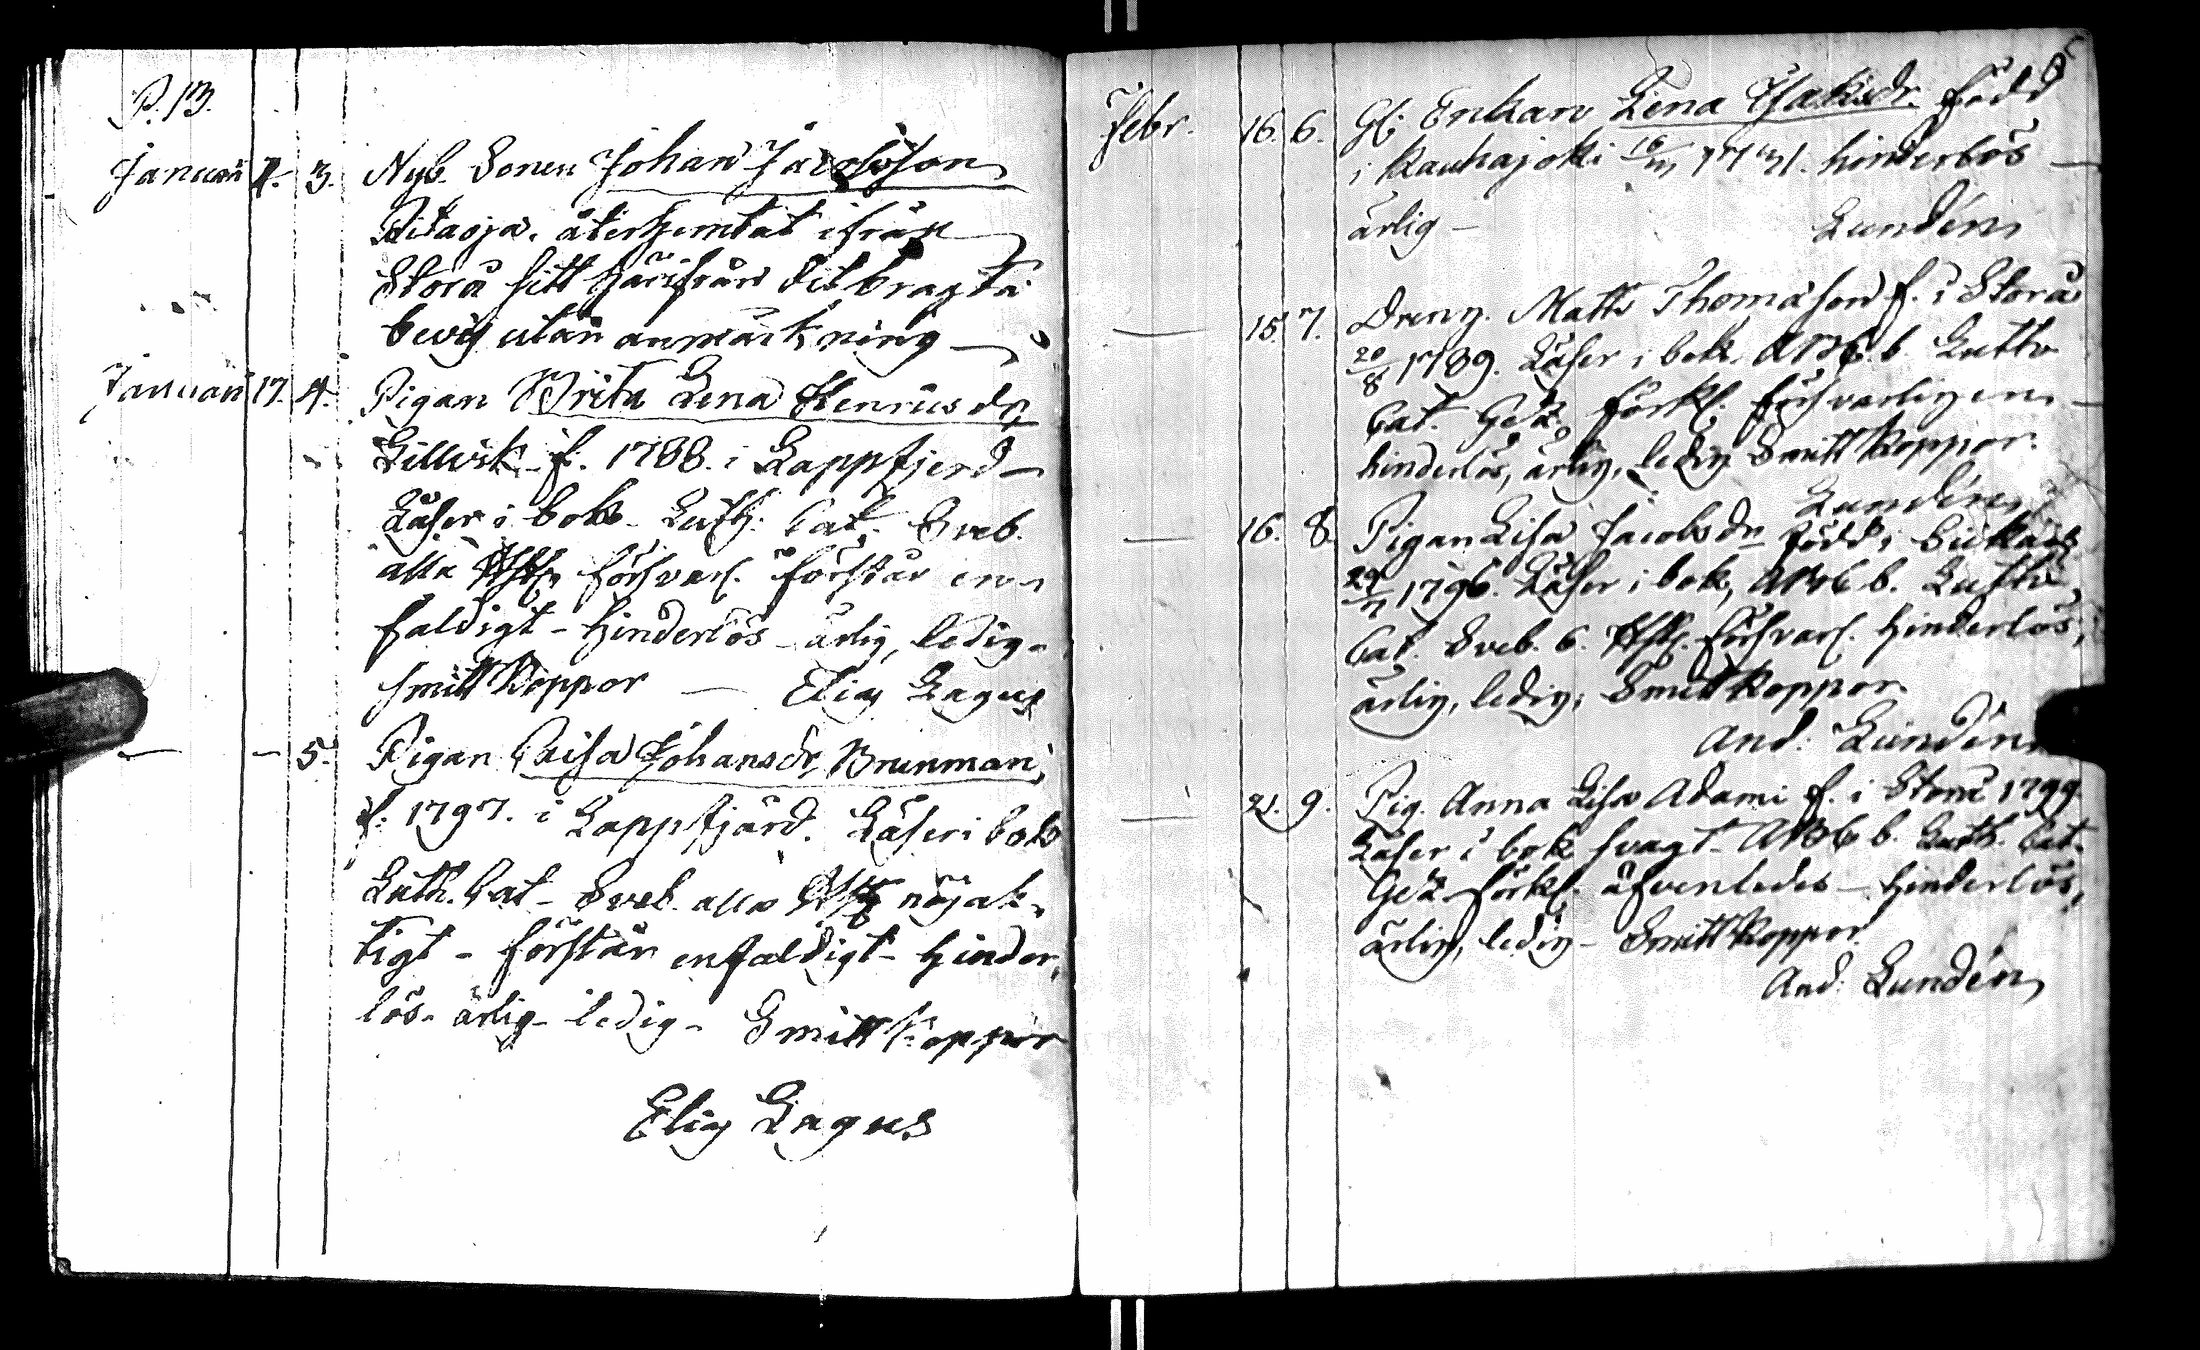 P. 13.
Januari 3. Nyb. Sonen Johan Jacobsson
Pitasja, återhemtat ifrån
Storå sitt härifrån dit bragta
bevis utan anmärkning —
Januari 17. 4. Pigan Brita Lena Henricsdr
Lillvik f. 1788. i Lappfjerd —
Läser i bok - Luth. Cat. Sveb.
alla försvarl. förstår en-
faldigt - hinderlös - ärlig, ledig -
smittkoppor — Elias Lagus
— — 5. Pigan Caisa Johansdr Brunman
f. 1797. i Lappfjärd. Läser i bok
Luth. Cat - Sveb. alla nöjak-
tigt - förstår enfaldigt - hinder-
lös - ärlig - ledig - Smittkoppor
Elias Lagus
Febr. 16. 6. Gl. Enkan Lena Isaksdr. född
i Kauhajoki hinderlös —
ärlig — Lundén
— 15. 7. Dreng. Matts Thomasson f. i Storå
20/8 1789. Läser i bok, Luth
Cat. förkl. försvarligen —
hinderlös, ärlig, ledig Smittkoppor.
Lundén
— 16. 8. Pigan Lisa Jacobsdr född i
29/7 1796. Läser i bok, Luth
Cat. Sveb. 6. försvarl. hinderlös,
ärlig, ledig, Smittkoppor.
And. Lundén
— 21. 9. Pig. Anna Lisa Adami f. i Storå 1799.
Läser i bok svagt - Luth. Cat.
förkl. äfvenledes — hinderlös,
ärlig, ledig - Smittkoppor.
And. Lundén